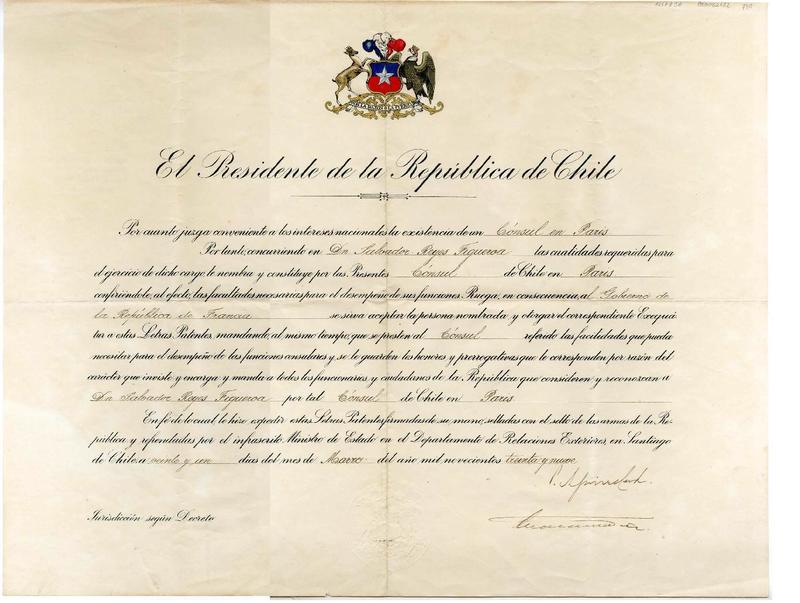 El Presidente de la República de Chile
Por cuanto juzga conveniente a los intereses nacionales la existencia de un Cónsul en Paris
Por tanto, concurriendo en Dn Salvador Reyes Figueroa las cualidades requeridas para
el ejercicio de dicho cargo le nombra y constituye por las Presentes Cónsul de Chile en Paris
confiriéndole, al efecto, las facultades necesarias para el desempeño de sus funciones. Ruega, en consecuencia, al Gobierno de
la República de Francia se sirva aceptar la persona nombrada y otorgar el correspondiente Exequá
tur a estas Letras Patentes, mandando, al mismo tiempo, que se presten al Cónsul referido las facilidades que pueda
necesitar para el desempeño de las funciones consulares y se le guarden los honores y prerrogativas que le corresponden por razón del
carácter que inviste y encarga y manda a todos los funcionarios y ciudadanos de la República que consideren y reconozcan a
Dn Salvador Reyes Figueroa por tal Cónsul de Chile en Paris
En fe de lo cual le hizo expedir estas Letras Patentes firmadas de su mano, selladas con el sello de las armas de la Re-
pública y refrendadas por el infrascrito Ministro de Estado en el Departamento de Relaciones Exteriores, en Santiago
de Chile a veinte y un días del mes de Marzo del año mil novecientos treinta y nueve
Jurisdicción según Decreto